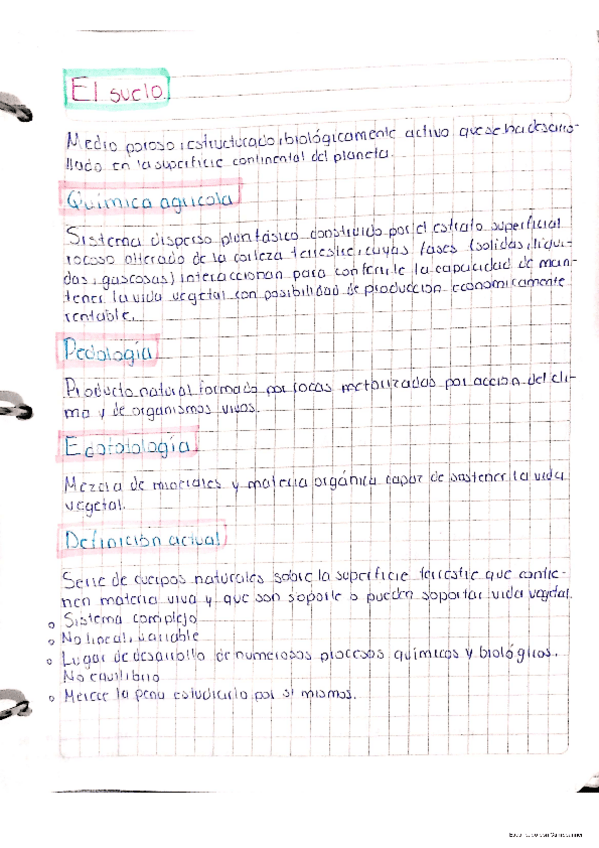 El suelo.
Medio poroso, estructurado, biológicamente activo que se ha desarro-
llado en la superficie continental del planeta.
Química agrícola
Sistema disperso plurifásico construido por el estrato superficial
rocoso alterado de la corteza terrestre, cuyas fases (solidas, liqui-
das, gaseosas) interaccionan para conferirle la capacidad de man-
tener la vida vegetal con posibilidad de produccion economicamente
rentable.
Pedología
Producto natural formado por rocas meteorizadas por accion del cli-
ma y de organismos vivos.
Mezcla de minerales y materia orgánica capaz de sostener la vida
vegetal.
Definición actual
Serie de cuerpos naturales sobre la superficie terrestre que contie-
nen materia viva y que son soporte o pueden soportar vida vegetal.
Sistema complejo
No lineal, variable
Lugar de desarrollo de numerosos procesos químicos y biológicos.
No equilibrio
Merece la pena estudiarlo por si mismos.